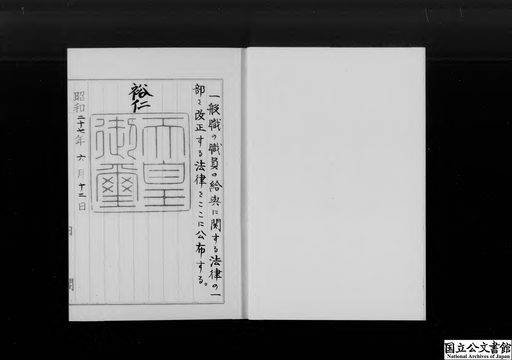 一般職の職員の給与に関する法律の一
部を改正する法律をここに公布する。
裕仁
天皇
御璽
昭和二十七年六月十二日
国立公文書館
National Archives of Japan